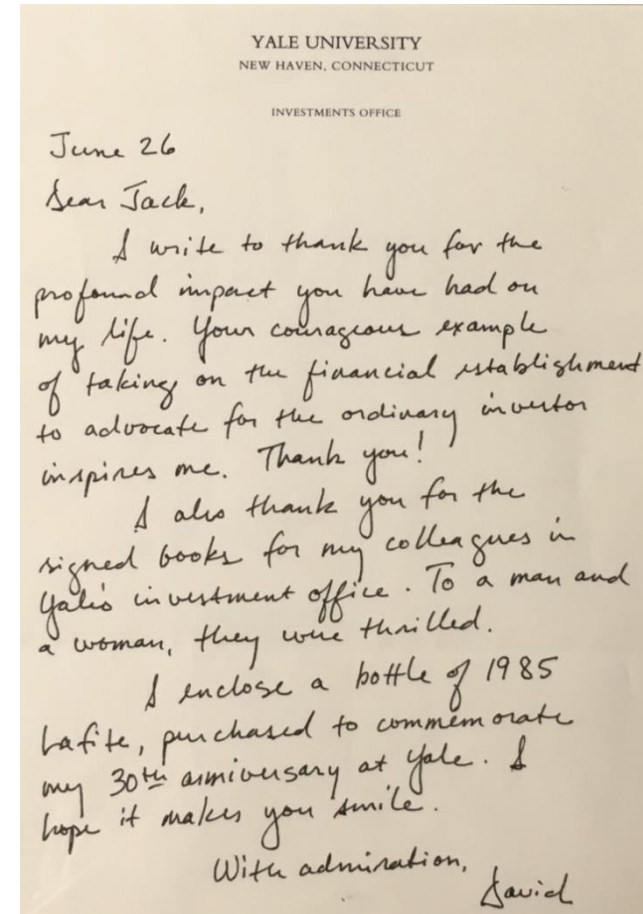 YALE UNIVERSITY
NEW HAVEN, CONNECTICUT
INVESTMENTS OFFICE
June 26
Dear Jack,
I write to thank you for the
profound impact you have had on
my life. Your courageous example
of taking on the financial establishment
to advocate for the ordinary investor
inspires me. Thank you!
I also thank you for the
signed books for my colleagues in
Yale's investment office. To a man and
a woman, they were thrilled.
I enclose a bottle of 1985
Lafite, purchased to commemorate
my 30th anniversary at Yale. I
hope it makes you smile.
With admiration,
David